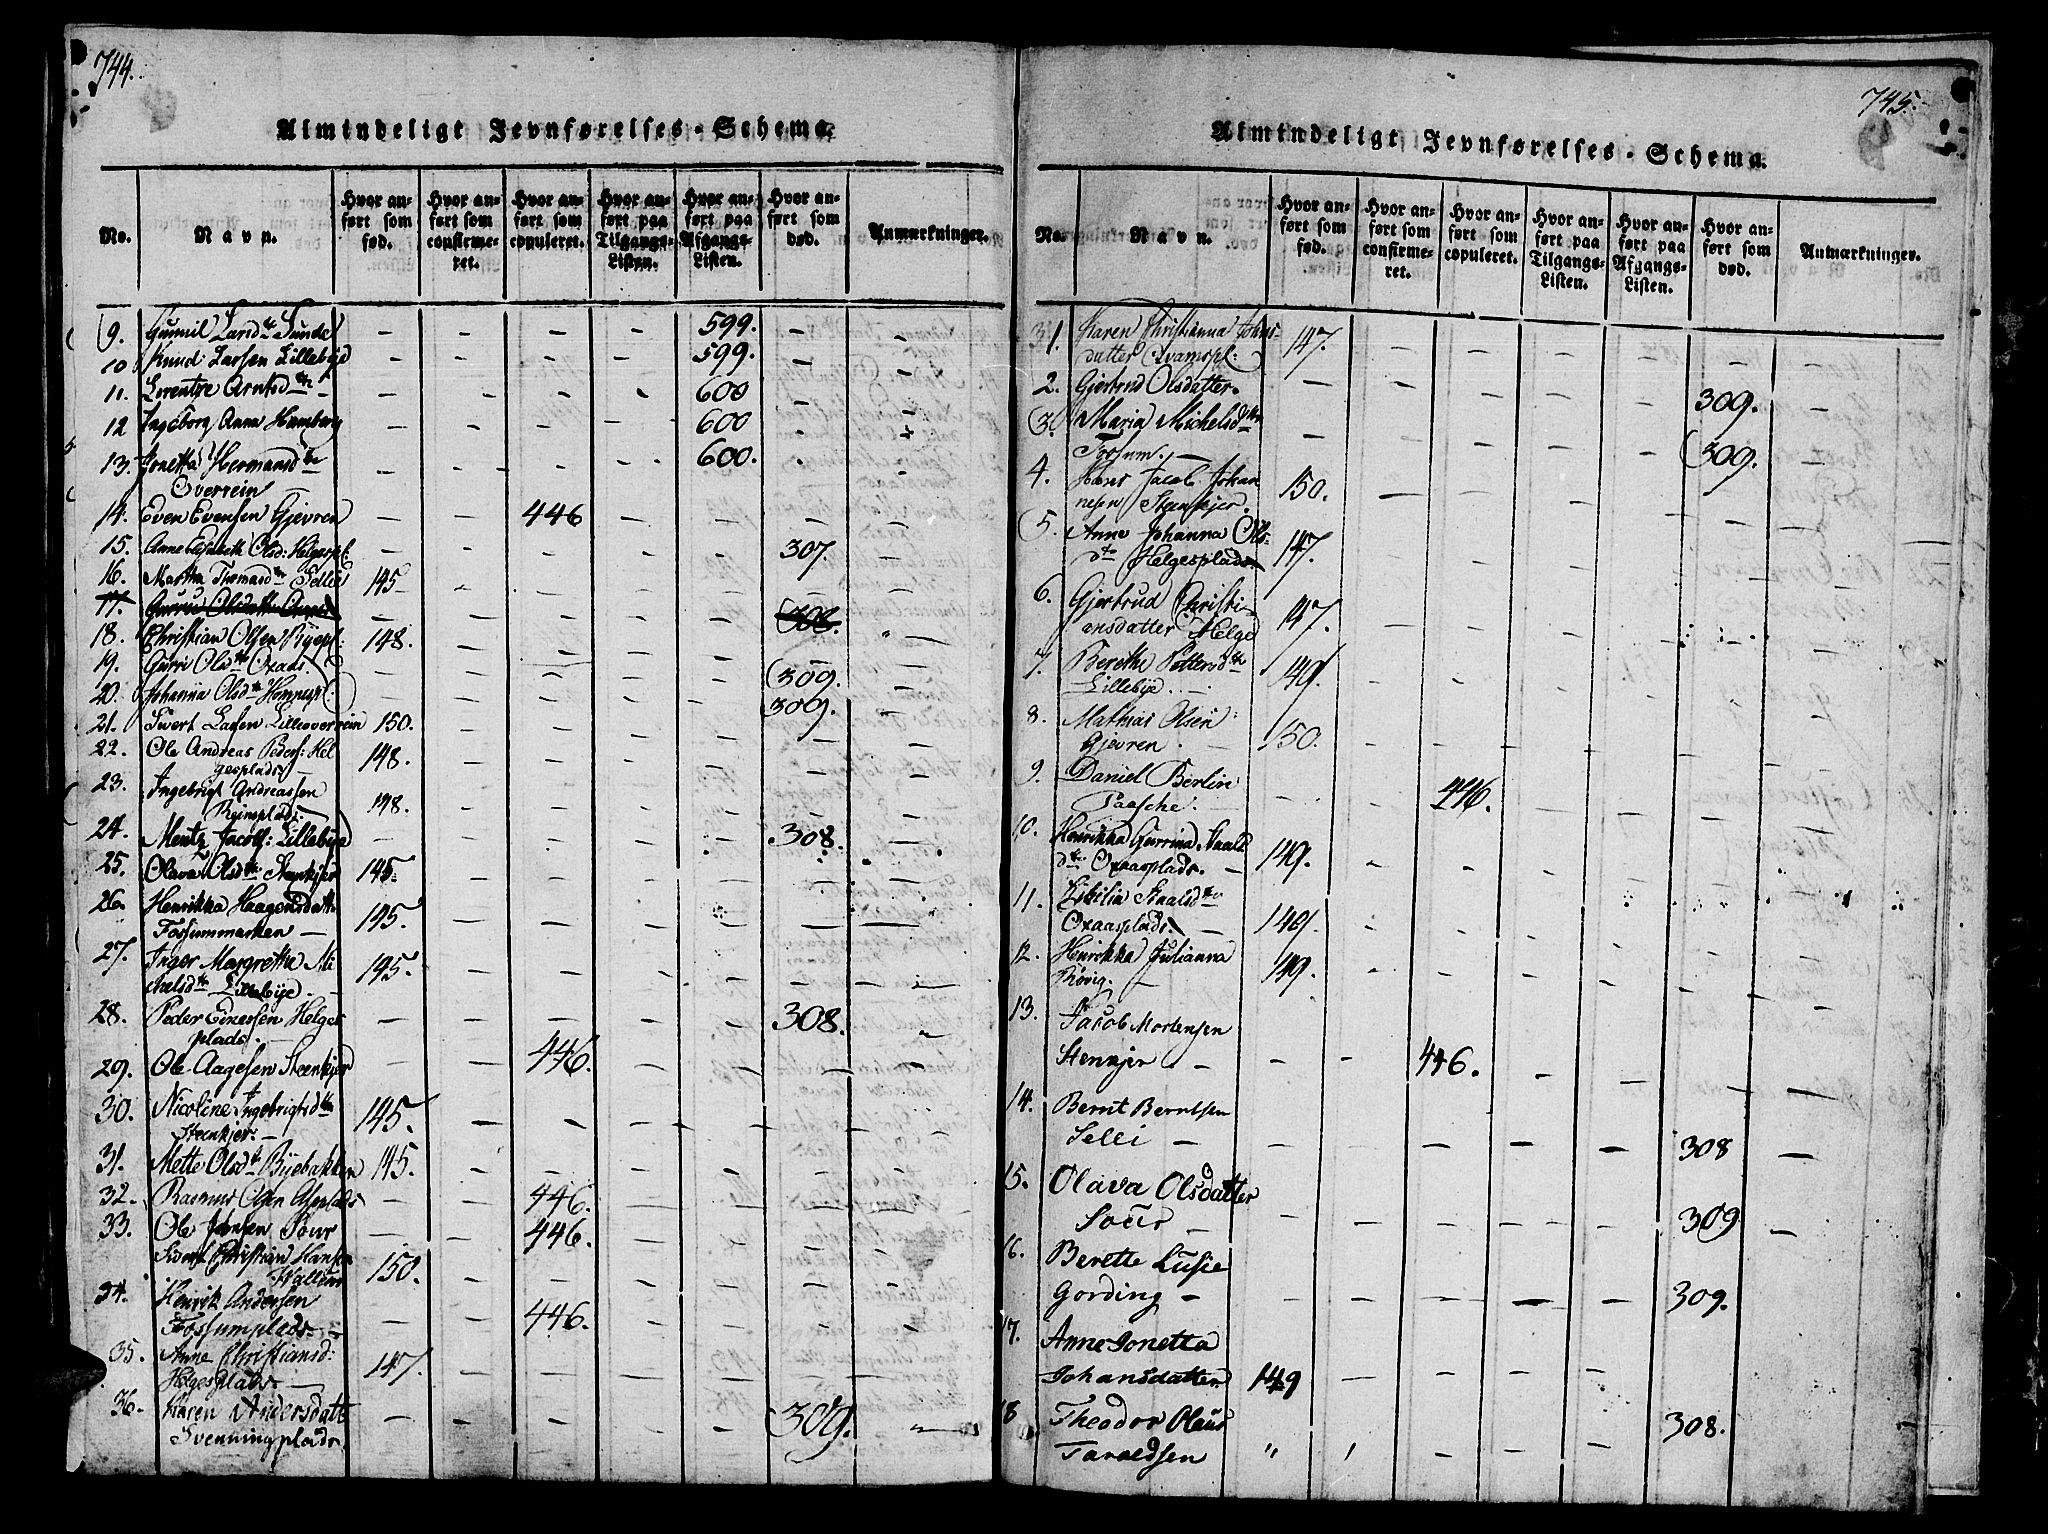 744.
Almindeligt Jevnførelses-Schema.
No.
Navn.
Hvor anført som fød.
Hvor anført som confirmeret.
Hvor anført som copuleret.
Hvor anført paa Tilgangs-Listen.
Hvor anført paa Afgangs-Listen.
Hvor anført som død.
Anmærkninger.
9. Gunnil Larsd Sunde 599.
10 Knud Larsen Lillebye 599.
11. Lorentze Arntsd 600
12 Ingeborg Anna Hamberg 600
13. Jonetta Hermansd 600.
Overrein
14. Even Evensen Gjevren 446
15. Anne Elisabeth Olsd: Helgespl: 307.
16. Martha Thomasd Sellie 145
17. Gurru Olsdatter 308.
18. Christian Olsen Byepl: 148.
19. Gurri Olsd Oxaas 309.
20. Johanna Olsd 309.
21. Sivert Lasen Lilleoverrein 150.
22. Ole Andreas Peders: Hel 148.
gesplads
23. Ingebrigt Andreassen
Reinsplads. 148.
24. Mentz Jacobs: Lillebye 308.
25. Olava Olsd Steenkjer 145
26. Henrikka Haagensdatt 145.
Fossummarken
27. Inger Margretha Mi 145.
chelsd Lillebye.
28. Peder Einersen Helges 308.
plads.
29. Ole Aagesen Steenkjer 446.
30. Nicoline Ingebrigtsd 145.
Steenkjer.
31. Mette Olsd Byebakken 145.
32. Rasmus Olsen 446.
33. Ole Jonsen Sour 446.
Sivert Christian Hansen
150.
34. Henrik Andersen
Fossumplads. 446.
35. Anne Christiansd: 147.
Helgesplads
36. Karen Andersdatt 309.
Svenningplads.
745.
Almindeligt Jevnførelses-Schema.
No.
Navn.
Hvor anført som fød.
Hvor anført som confirmeret.
Hvor anført som copuleret.
Hvor anført paa Tilgangs-Listen.
Hvor anført paa Afgangs-Listen.
Hvor anført som død.
Anmærkninger.
1. Karen Christianna Johns-
datter Qvamspl: 147.
2. Gjertrud Olsdatter. 309.
3. Maria Michelsd
Fossum. 309.
4. Hans Jacob Johan
nesen Steenkjer. 150.
5. Anne Johanna Ols-
d Helgesplads 147.
6. Gjertrud Christi-
ansdatter Helge 147.
7. Berethe Pettersd
Lillebye. 149.
8. Mathias Olsen
Gjevren. 150.
9. Daniel Berlin
Paasche. 446.
10. Henrikka Gurrina Staals
d Oxaasplads. 149.
11. Staalsd
Oxaasplads. 149.
12. Henrikka Julianna
149.
13. Jacob Mortensen
Stenkjer 446.
14. Bernt Berntsen
Selli 308
15. Olava Olsdatter
Sour 309
16. Berette Lusie
Gording 309.
17. Anne Jonetta
Johansdatter. 149
18 Theodor Olaus 308.
Taraldsen